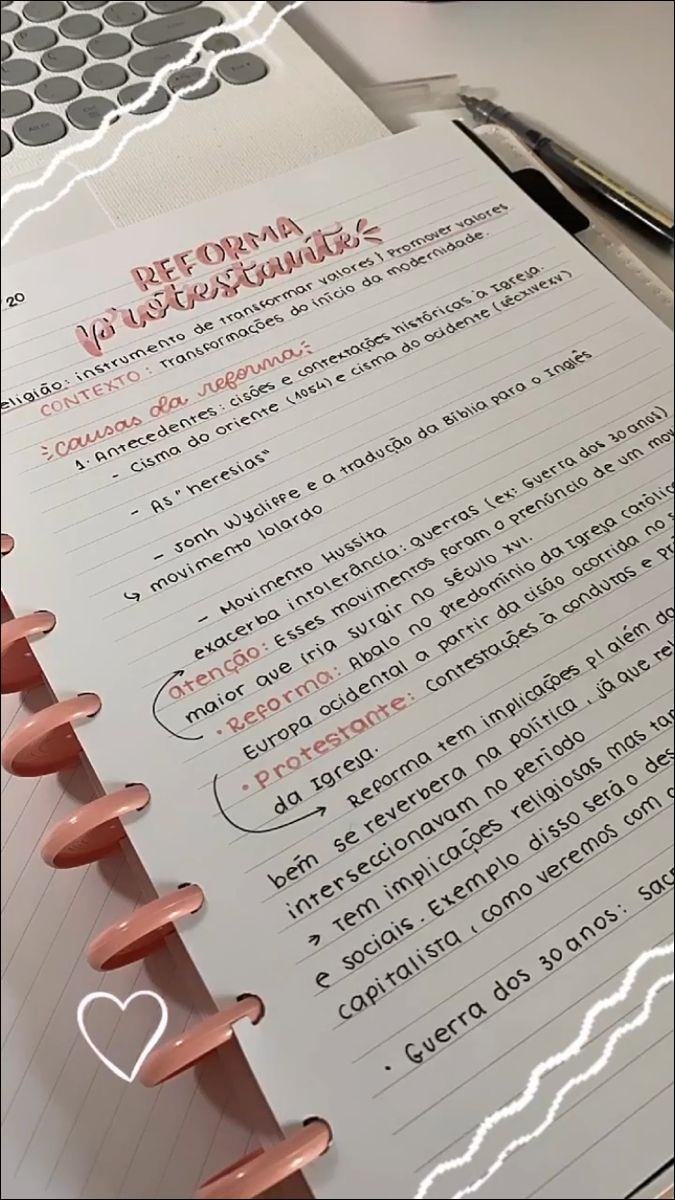 20
REFORMA
protestante
eligião: instrumento de transformar valores} Promover valores
CONTEXTO: Transformações do início da modernidade.
causas da reforma:
1. Antecedentes: cisões e contextações históricas à Igreja.
- Cisma do oriente (1054) e cisma do ocidente (séc XIV e XV)
- As "heresias"
- Jonh Wycliffe e a tradução da Bíblia para o Inglês
↳ movimento lolardo
- Movimento Hussita
exacerba intolerância: guerras (ex: Guerra dos 30 anos)
atenção: Esses movimentos foram o prenúncio de um mov
maior que iria surgir no século XVI.
• Reforma: Abalo no predomínio da Igreja católic
Europa ocidental a partir da cisão ocorrida no s
• Protestante: Contestações à condutas e pr
da Igreja.
Reforma tem implicações p/ além da
bem se reverbera na política, já que rel
interseccionavam no período
→ Tem implicações religiosas mas tam
e sociais. Exemplo disso será o des
capitalista, como veremos com
• Guerra dos 30 anos: Sacr